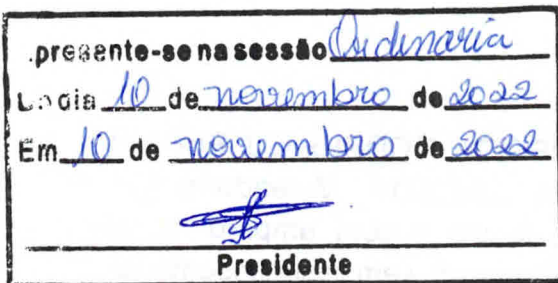 .presente-se na sessão Ordinaria
dia 10 de novembro de 2022
Em 10 de novembro de 2022
Presidente